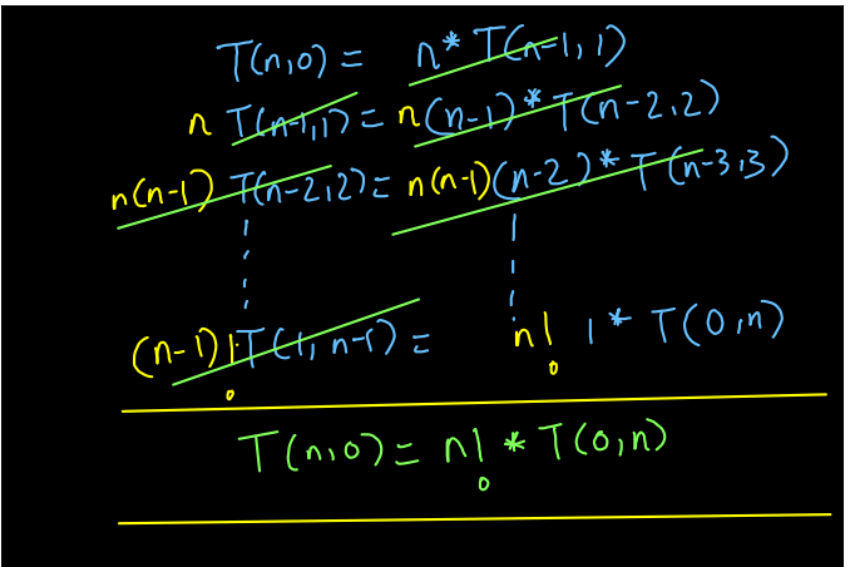 T(n,0) = n* T(n-1, 1)
n T(n-1,1) = n(n-1)* T(n-2,2)
n(n-1) T(n-2,2) = n(n-1)(n-2)* T(n-3,3)
(n-1)! T(1, n-1) = n! 1* T(0,n)
T(n,0) = n! * T(0,n)